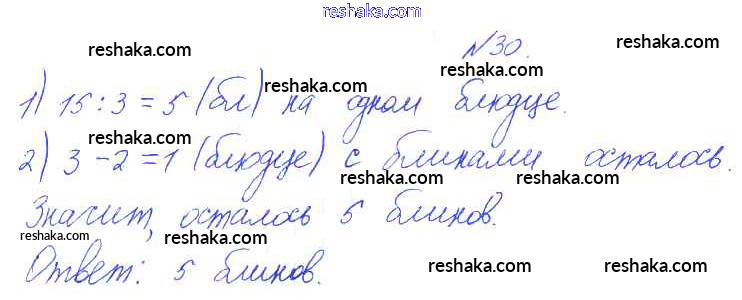 reshaka.com
reshaka.com reshaka.com
№30.
reshaka.com
reshaka.com
1) 15:3=5 (бл) на одном блюдце.
reshaka.com reshaka.com
2) 3-2=1 (блюдце) с блинами осталось.
reshaka.com reshaka.com
Значит, осталось 5 блинов.
reshaka.com reshaka.com
Ответ: 5 блинов.
reshaka.com reshaka.com